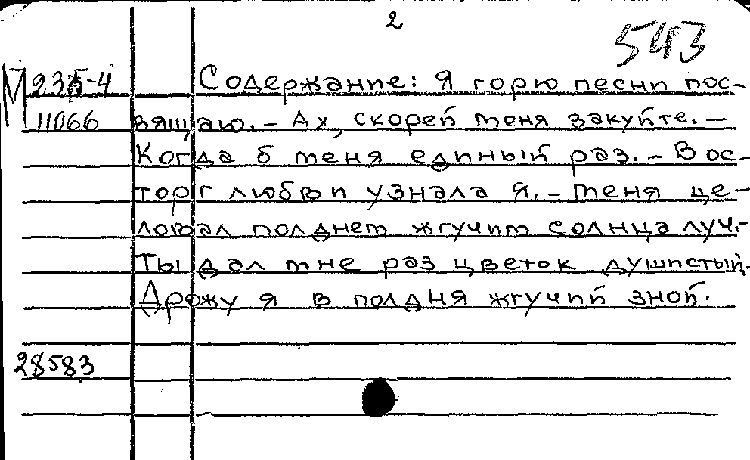 2
543
М 235-4 Содержание: Я горю песни пос-
11066 вящаю. - Ах, скорей меня закуйте. -
Когда б меня единый раз. - Вос-
торг любви узнала я. - Меня це-
ловал полднем жгучим солнца луч.-
Ты дал мне раз цветок душистый.
Дрожу я в полдня жгучий зной.
28583